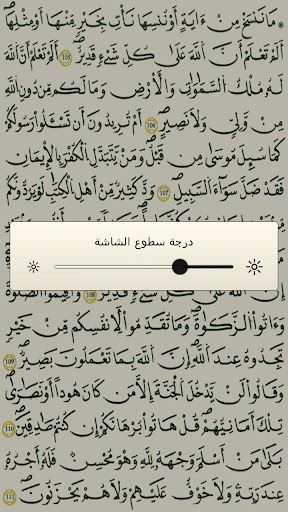 مَا نَنسَخْ مِنَ ايَةٍ اَوْ نُنسِهَا نَاتِ بِخَيْرٍ مِّنْهَا أَوْ مِثْلِهَا
أَلَمْ تَعْلَمَ اَنَّ اَللَّهَ عَلَىٰ كُلِّ شَيْءٍ قَدِيرٌ 105 أَلَمْ تَعْلَمَ اَنَّ اَللَّهَ
لَهُ مُلْكُ السَّمَٰوَٰتِ وَالَارْضِ وَمَا لَكُم مِّن دُونِ اِللَّهِ
مِنْ وَّلِيٍّ وَلَا نَصِيرٍ 106 أَمْ تُرِيدُونَ أَن تَسْـَٔلُوا رَسُولَكُمْ
كَمَا سُئِلَ مُوسَىٰ مِن قَبْلُ وَمَنْ يَّتَبَدَّلِ الْكُفْرَ بِالِايمَٰنِ
فَقَد ضَّلَّ سَوَآءَ السَّبِيلِ 107 وَدَّ كَثِيرٌ مِّنَ اَهْلِ الْكِتَٰبِ لَوْ يَرُدُّونَكُم
درجة سطوع الشاشة
إِنَّ اَللَّهَ عَلَىٰ كُلِّ شَيْءٍ قَدِيرٌ 108 وَأَقِيمُوا الصَّلَوٰةَ
وَءَاتُوا الزَّكَوٰةَ وَمَا تُقَدِّمُوا لِأَنفُسِكُم مِّنْ خَيْرٍ
تَجِدُوهُ عِندَ اَللَّهِ إِنَّ اَللَّهَ بِمَا تَعْمَلُونَ بَصِيرٌ 109
وَقَالُوا لَنْ يَّدْخُلَ الْجَنَّةَ إِلَّا مَن كَانَ هُودًا اَوْ نَصَٰرَىٰ
تِلْكَ أَمَانِيُّهُمْ قُلْ هَاتُوا بُرْهَٰنَكُمُ إِن كُنتُمْ صَٰدِقِينَ 110
بَلَىٰ مَنَ اَسْلَمَ وَجْهَهُ لِلَّهِ وَهُوَ مُحْسِنٌ فَلَهُ أَجْرُهُ
عِندَ رَبِّهِ وَلَا خَوْفٌ عَلَيْهِمْ وَلَا هُمْ يَحْزَنُونَ 111